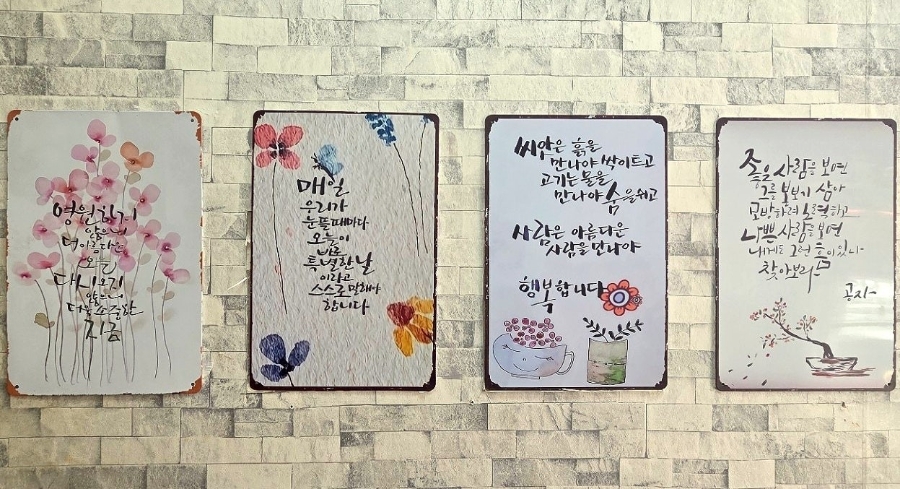 영원하게
않으니
더 아름다운
오늘
다시 오지
않으니
더욱 소중한
지금
매일
우리가
눈뜰때마다
오늘이
특별한 날
이라고
스스로 말해야
합니다
씨앗은 흙을
만나야 싹이트고
고기는 물을
만나야 숨을쉬고
사람은 아름다운
사람을 만나야
행복합니다
좋은 사람을 보면
그를 본보기 삼아
모방하려 노력하고
나쁜 사람을 보면
내게도 그런 흠이 있나
찾아보라
공자